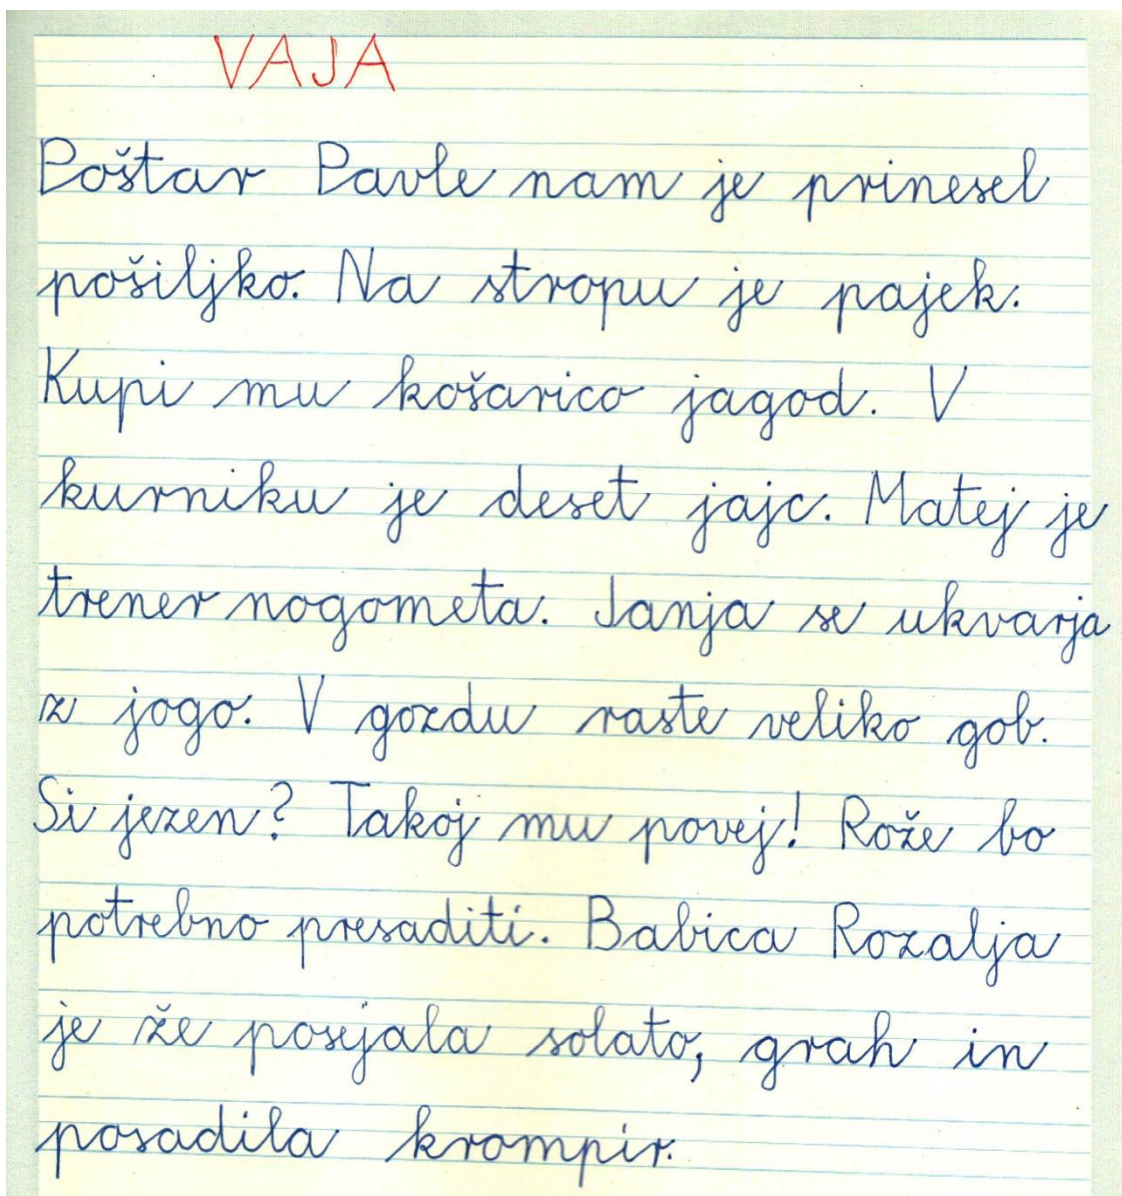 VAJA
Poštar Pavle nam je prinesel
pošiljko. Na stropu je pajek.
Kupi mu košarico jagod. V
kurniku je deset jajc. Matej je
trener nogometa. Janja se ukvarja
z jogo. V gozdu raste veliko gob.
Si jezen? Takoj mu povej! Rože bo
potrebno presaditi. Babica Rozalja
je že posejala solato, grah in
posadila krompir.